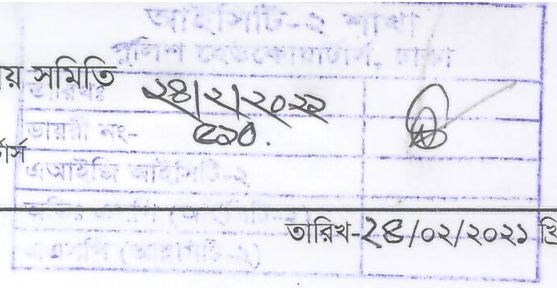 আইসিটি-২ শাখা
পুলিশ হেডকোয়ার্টার্স, ঢাকা
য় সমিতি
তারিখঃ ২৪/২/২০২২
ডায়রী নং-
র্টার্স
এআইজি আইসিটি-২
তারিখ-২৪/০২/২০২১ খ্রি
এএসপি (আইসিটি-২)